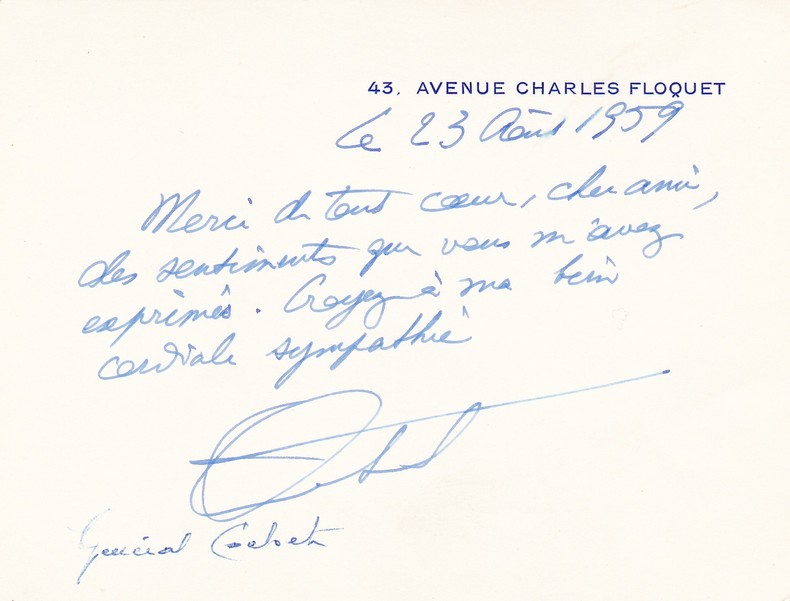 43, AVENUE CHARLES FLOQUET
le 23 Août 1959
Merci de tout cœur, cher ami,
des sentiments que vous m'avez
exprimés. Croyez à ma bien
cordiale sympathie
Général